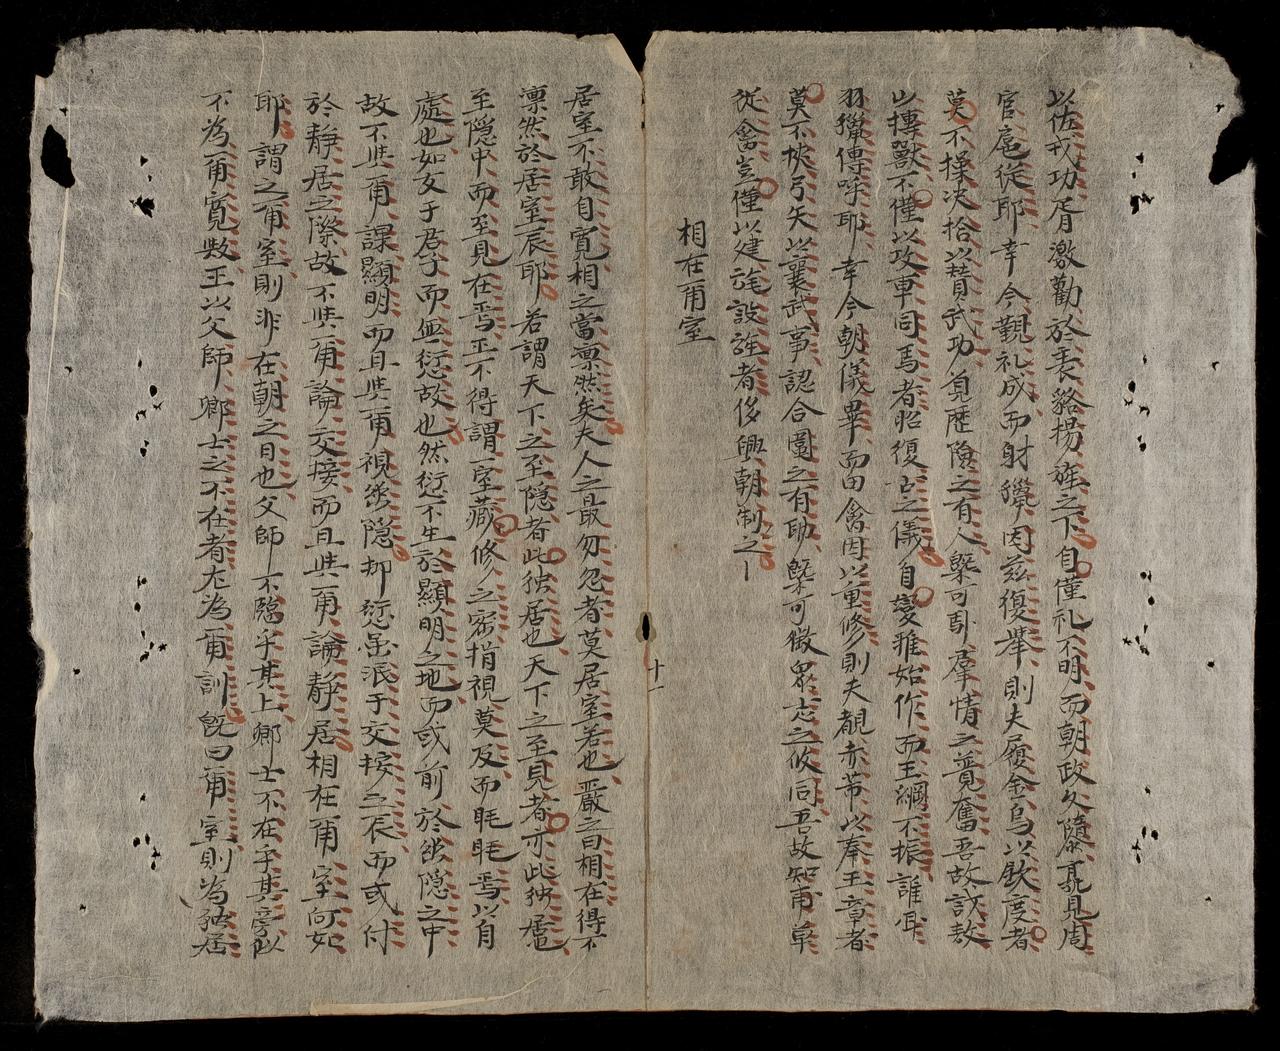 以佐戎功胥激勸於表貉揚旌之下自僅礼不明而朝政久隳髙見周
官扈從耶幸今覲礼成而射獵因茲復舉則夫履金舄以欽度者
莫不操決拾以賛武功負歴險之有人槩可卧羣情之竟奮吾故訝敖
山摶獸不僅以攻車同馬者昭復古之儀自變雅始作而王綱不振誰
羽獵傳呼耶幸今朝儀畢而田禽因以重修則夫覩赤芾以奉王章者
莫不挾弓矢以襄武事認合圍之有助槩可徴衆志之攸同吾故知甫草
從禽豈僅以建旄設旐者侈興朝制之
相在甭室
十一
居室不敢自寛相之當凛然矣夫人之最勿忽者莫居室若也嚴之曰相在得不
凛然於居室辰耶若謂天下之至隠者此独居也天下之至見者亦此独居
至隠中而至見在焉正不得謂一室藏修之密指視莫及而眊眊焉以自
處也如友于君子而無愆故也然愆不生於顯明之地而或前於幽隠之中
故不㫷甭課顯明而且㫷甭視幽隠抑愆虽泯于交接之辰而或付
於静居之際故不㫷甭論交接而且㫷甭論静居相在甭室何如
耶謂之甭室則非在朝之日也父師不臨乎其上卿士不在乎其旁似
不為甭寛欤王以父師卿士之不在者尤為甭訓既曰甭室則為独居